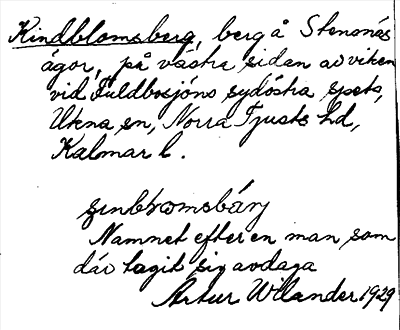 Kindblomsberg, berg å Stensnäs
ägor, på västra sidan av viken
vid Fuldbosjöns sydöstra spets,
Ukna sn, Norra Tjusts hd,
Kalmar l.
Namnet efter en man som
där tagit sig av daga
Artur Wilander 1929